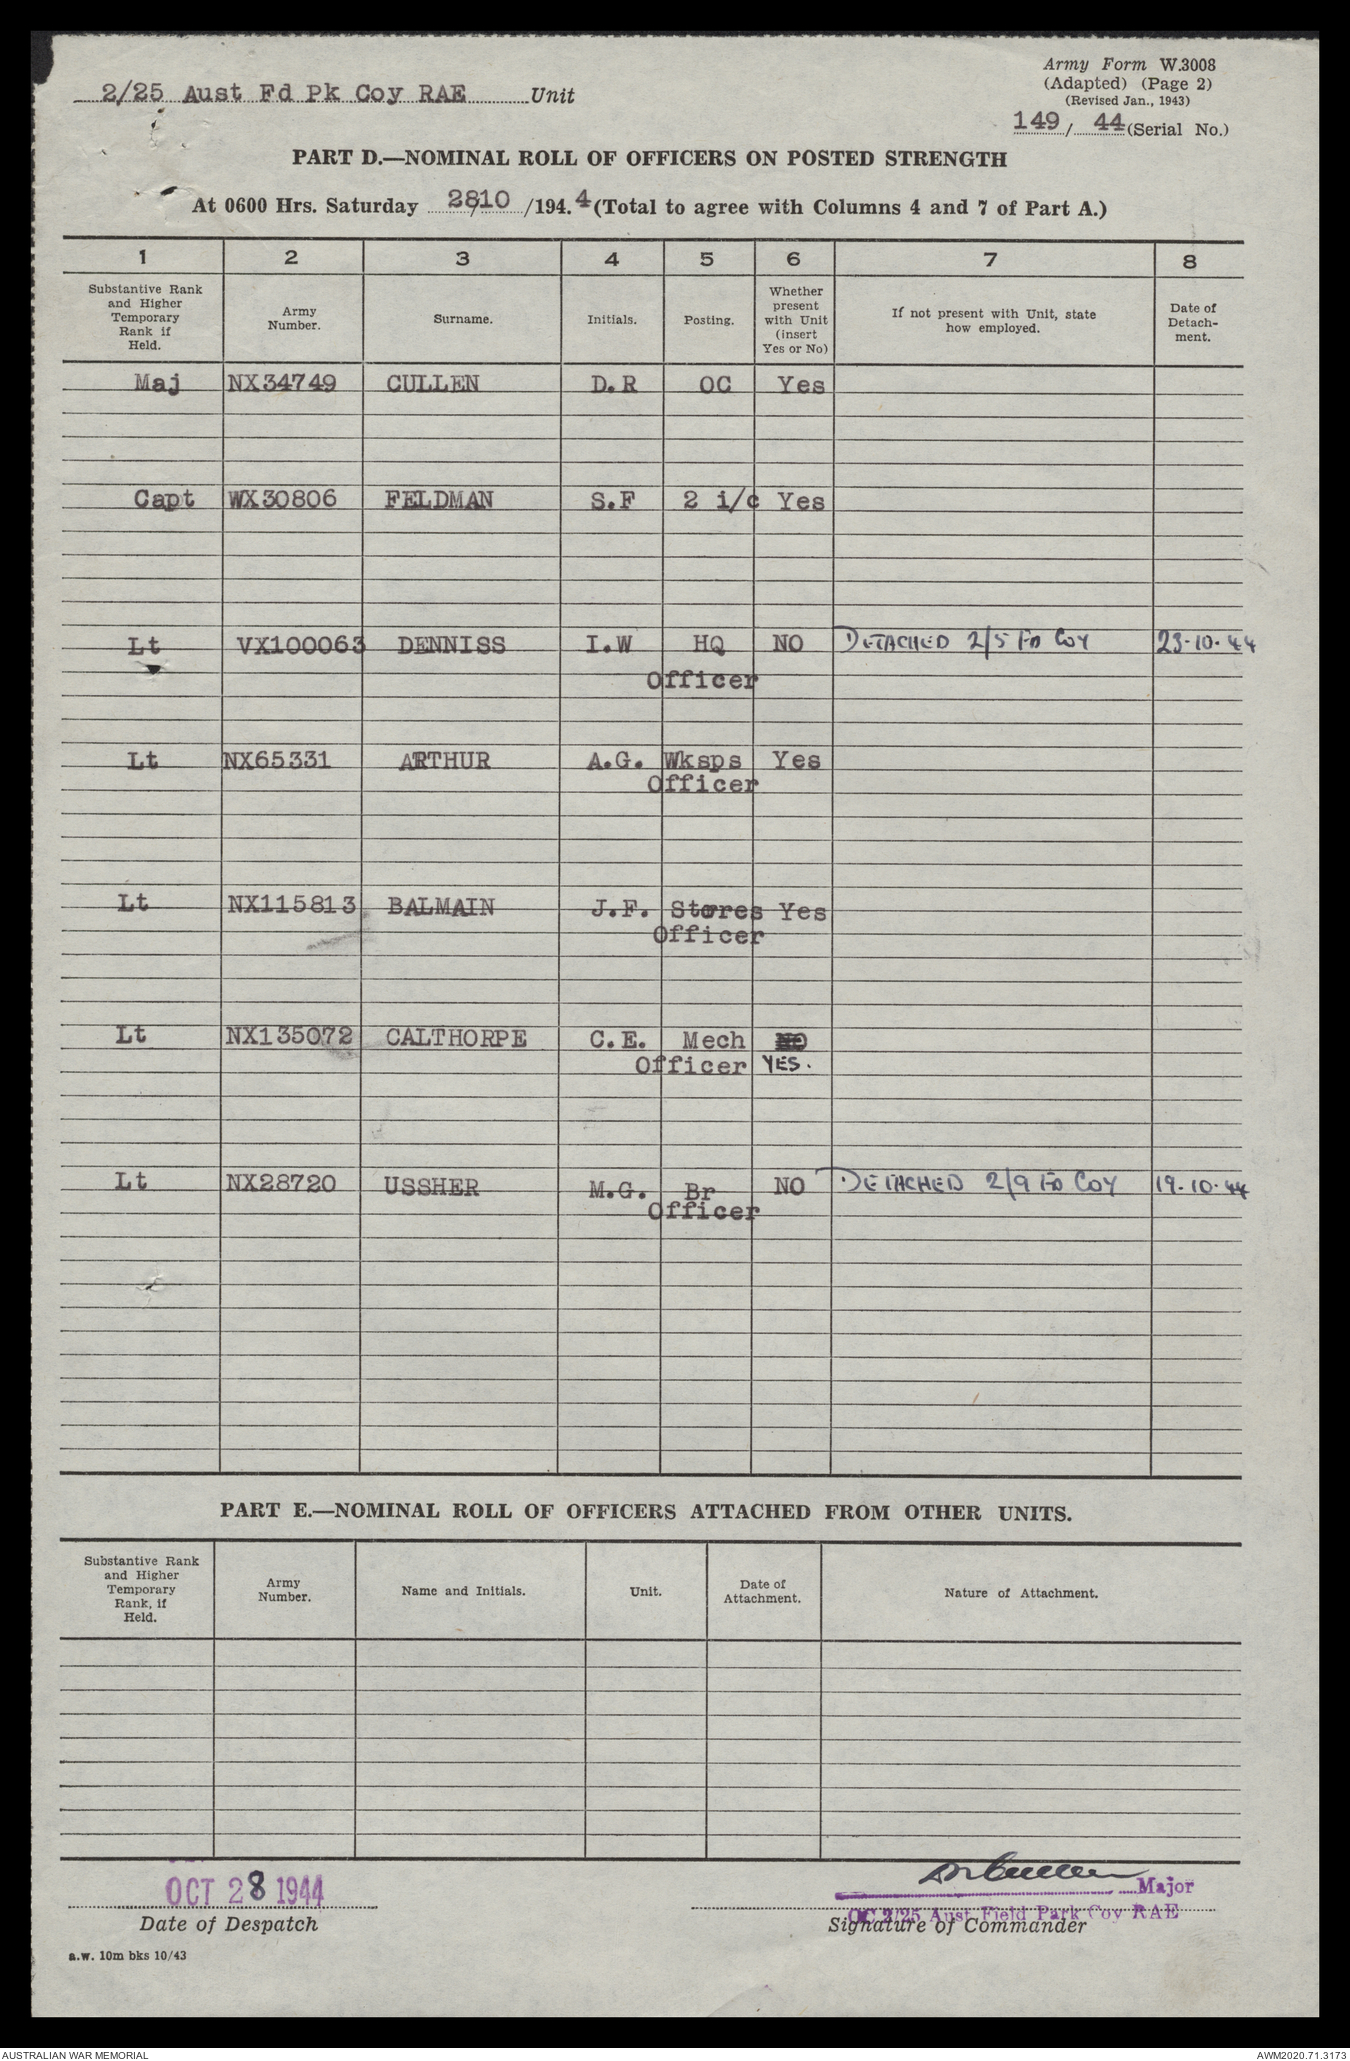 2/25 Aust Fd Pk Coy RAE Unit
Army Form W.3008
(Adapted) (Page 2)
(Revised Jan., 1943)
149/ 44 (Serial No.)
PART D.—NOMINAL ROLL OF OFFICERS ON POSTED STRENGTH
At 0600 Hrs. Saturday 28/10 /194.4 (Total to agree with Columns 4 and 7 of Part A.)
1 2 3 4 5 6 7 8
Substantive Rank and Higher Temporary Rank if Held. Army Number. Surname. Initials. Posting. Whether present with Unit (insert Yes or No) If not present with Unit, state how employed. Date of Detach-ment.
Maj NX34749 CULLEN D.R OC Yes
Capt WX30806 FELDMAN S.F 2 i/c Yes
Lt VX100063 DENNISS I.W HQ NO DETACHED 2/5 FD COY 23-10-44
Officer
Lt NX65331 ARTHUR A.G. Wksps Yes
Officer
Lt NX115813 BALMAIN J.F. Stores Yes
Officer
Lt NX135072 CALTHORPE C.E. Mech NO
Officer YES.
Lt NX28720 USSHER M.G. Br NO DETACHED 2/9 FD COY 19-10-44
Officer
PART E.—NOMINAL ROLL OF OFFICERS ATTACHED FROM OTHER UNITS.
Substantive Rank and Higher Temporary Rank, if Held. Army Number. Name and Initials. Unit. Date of Attachment. Nature of Attachment.
OCT 28 1944
DRCullen Major
OC 2/25 Aust Field Park Coy RAE
Date of Despatch
Signature of Commander
a.w. 10m bks 10/43
AUSTRALIAN WAR MEMORIAL
AWM2020.71.3173